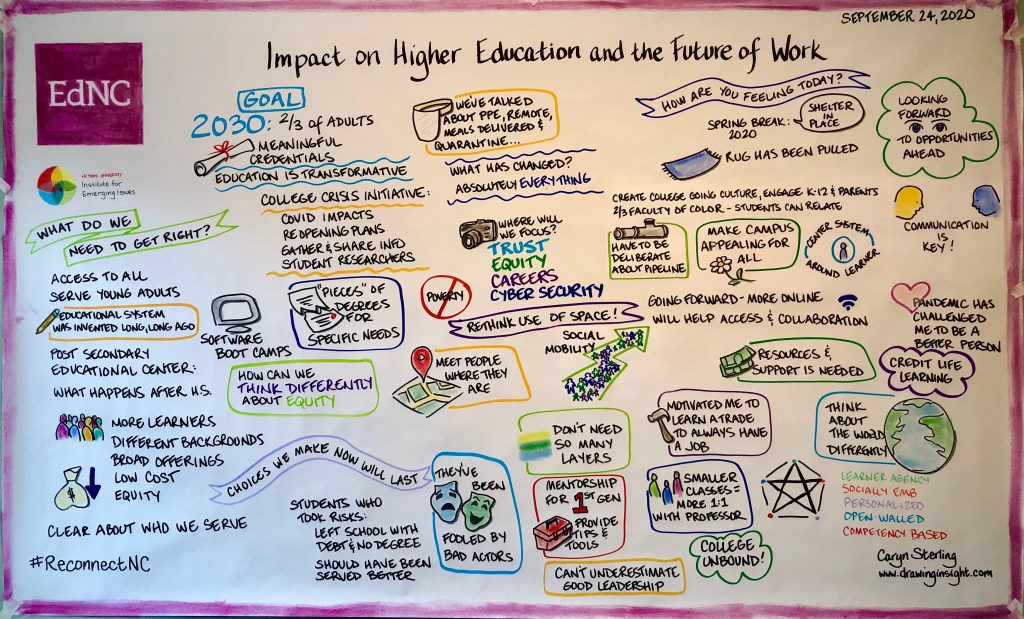 SEPTEMBER 24, 2020
Impact on Higher Education and the Future of Work
EdNC
Institute for
Emerging Issues
GOAL
2030: 2/3 OF ADULTS
MEANINGFUL
CREDENTIALS
EDUCATION IS TRANSFORMATIVE
COLLEGE CRISIS INITIATIVE:
COVID IMPACTS
REOPENING PLANS
GATHER & SHARE INFO
STUDENT RESEARCHERS
WE'VE TALKED
ABOUT PPE, REMOTE,
MEALS DELIVERED &
QUARANTINE...
WHAT HAS CHANGED?
ABSOLUTELY EVERYTHING
WHERE WILL
WE FOCUS?
TRUST
EQUITY
CAREERS
CYBER SECURITY
HOW ARE YOU FEELING TODAY?
SPRING BREAK:
2020
SHELTER
IN
PLACE
RUG HAS BEEN PULLED
LOOKING
FORWARD
TO OPPORTUNITIES
AHEAD
CREATE COLLEGE GOING CULTURE, ENGAGE K-12 & PARENTS
2/3 FACULTY OF COLOR - STUDENTS CAN RELATE
HAVE TO BE
DELIBERATE
ABOUT PIPELINE
MAKE CAMPUS
APPEALING FOR
ALL
CENTER SYSTEM
AROUND LEARNER
COMMUNICATION
IS KEY!
WHAT DO WE
NEED TO GET RIGHT?
ACCESS TO ALL
SERVE YOUNG ADULTS
EDUCATIONAL SYSTEM
WAS INVENTED LONG, LONG AGO
POST SECONDARY
EDUCATIONAL CENTER:
WHAT HAPPENS AFTER H.S.
MORE LEARNERS
DIFFERENT BACKGROUNDS
BROAD OFFERINGS
LOW COST
EQUITY
CLEAR ABOUT WHO WE SERVE
#ReconnectNC
SOFTWARE
BOOT CAMPS
"PIECES" OF
DEGREES
FOR
SPECIFIC NEEDS
POVERTY
HOW CAN WE
THINK DIFFERENTLY
ABOUT EQUITY
MEET PEOPLE
WHERE THEY
ARE
RETHINK USE OF SPACE!
SOCIAL
MOBILITY
GOING FORWARD - MORE ONLINE
WILL HELP ACCESS & COLLABORATION
PANDEMIC HAS
CHALLENGED
ME TO BE A
BETTER PERSON
RESOURCES &
SUPPORT IS NEEDED
CREDIT LIFE
LEARNING
CHOICES WE MAKE NOW WILL LAST
STUDENTS WHO
TOOK RISKS:
LEFT SCHOOL WITH
DEBT & NO DEGREE
SHOULD HAVE BEEN
SERVED BETTER
THEY'VE
BEEN
FOOLED BY
BAD ACTORS
DON'T NEED
SO MANY
LAYERS
MENTORSHIP
FOR 1ST GEN
PROVIDE
TIPS &
TOOLS
CAN'T UNDERESTIMATE
GOOD LEADERSHIP
MOTIVATED ME TO
LEARN A TRADE
TO ALWAYS HAVE
A JOB
SMALLER
CLASSES =
MORE 1:1
WITH PROFESSOR
COLLEGE
UNBOUND!
THINK
ABOUT
THE WORLD
DIFFERENTLY
LEARNER AGENCY
SOCIALLY EMB
PERSONALIZED
OPEN-WALLED
COMPETENCY BASED
Caryn Sterling
www.drawinginsight.com